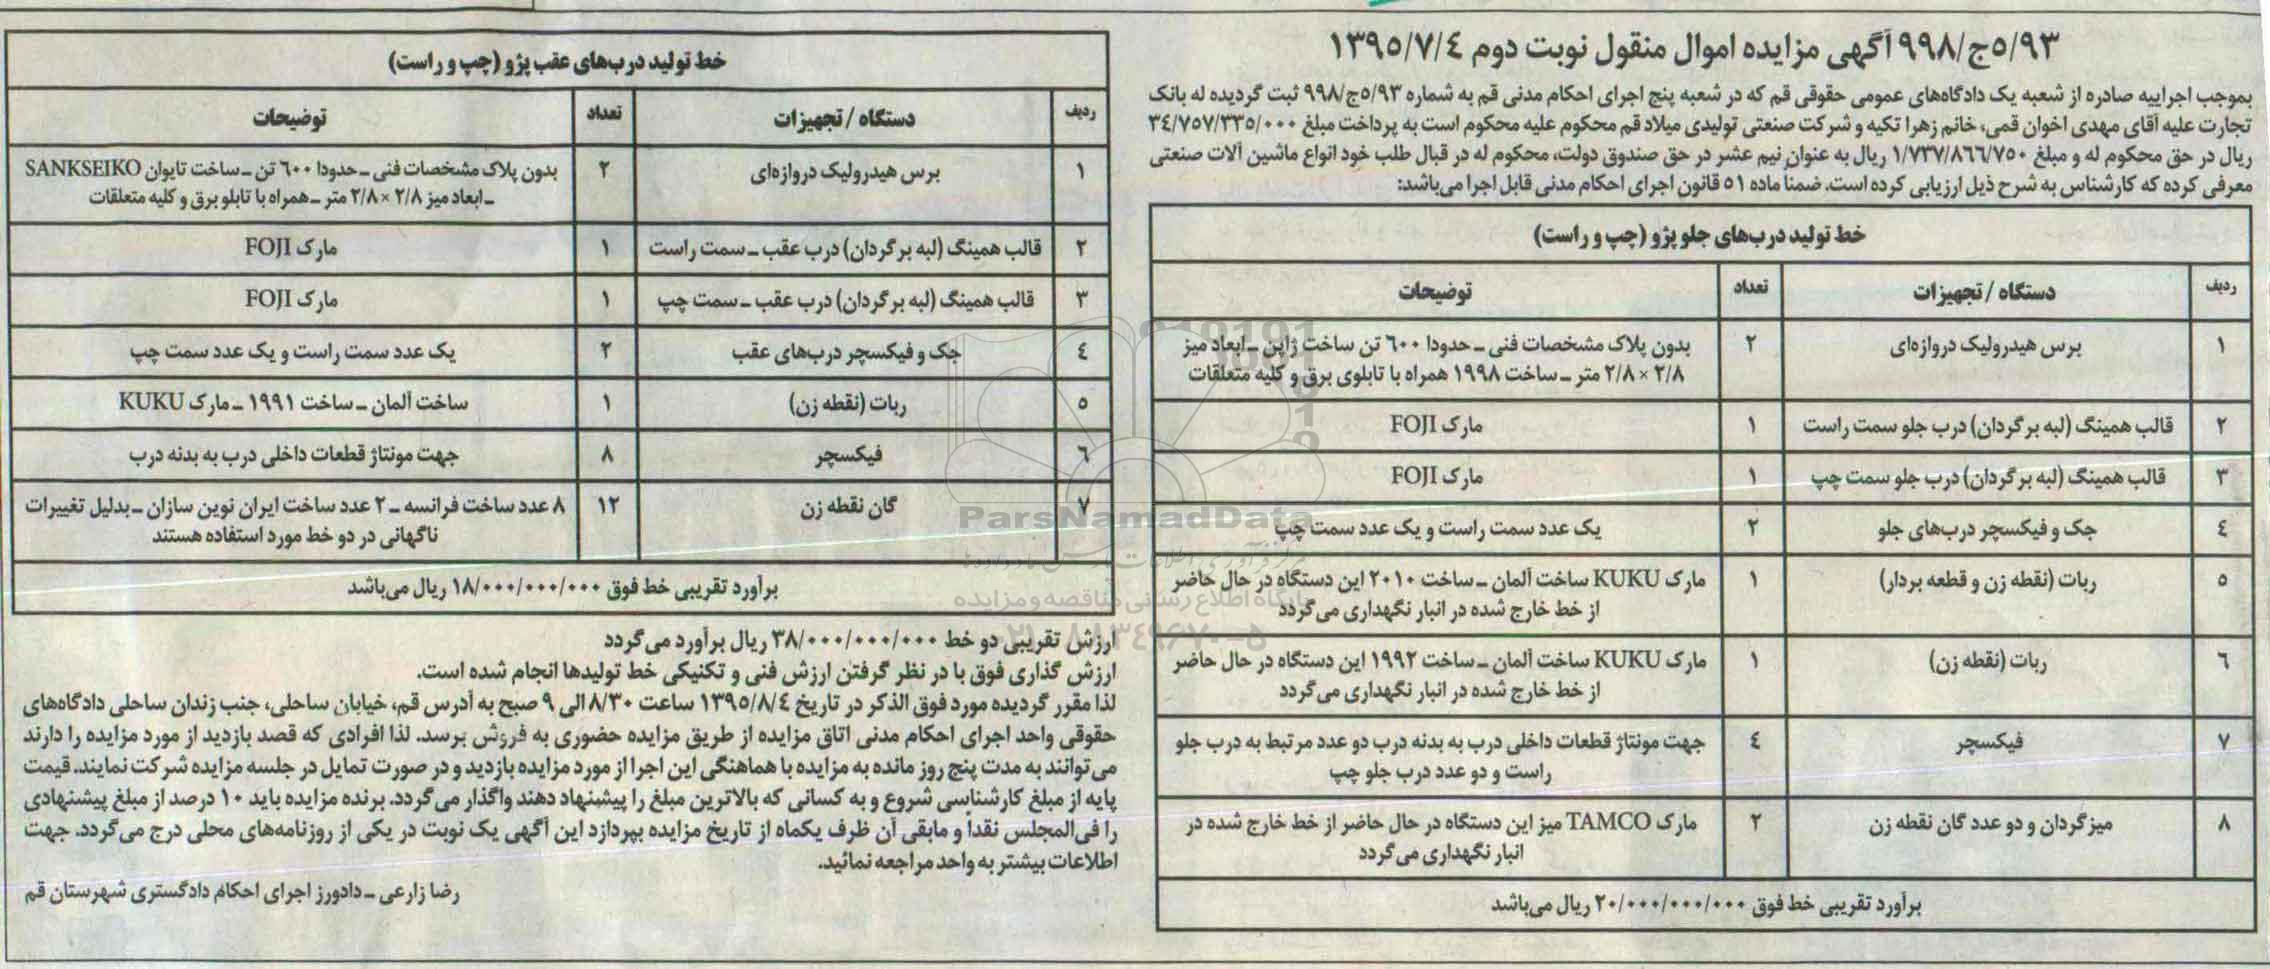 ۵/۹۳ج/۹۹۸ آگهی مزایده اموال منقول نوبت دوم ۱۳۹۵/۷/۴
بموجب اجراییه صادره از شعبه یک دادگاه‌های عمومی حقوقی قم که در شعبه پنج اجرای احکام مدنی قم به شماره ۵/۹۳ج/۹۹۸ ثبت گردیده له بانک
تجارت علیه آقای مهدی اخوان قمی، خانم زهرا تکیه و شرکت صنعتی تولیدی میلاد قم محکوم علیه محکوم است به پرداخت مبلغ ۳۴/۷۵۷/۳۳۵/۰۰۰
ریال در حق محکوم له و مبلغ ۱/۷۳۷/۸۶۶/۷۵۰ ریال به عنوان نیم عشر در حق صندوق دولت، محکوم له در قبال طلب خود انواع ماشین آلات صنعتی
معرفی کرده که کارشناس به شرح ذیل ارزیابی کرده است. ضمنا ماده ۵۱ قانون اجرای احکام مدنی قابل اجرا می‌باشد:
خط تولید درب‌های جلو پژو (چپ و راست)
ردیف دستگاه / تجهیزات تعداد توضیحات
۱ برس هیدرولیک دروازه‌ای ۲ بدون پلاک مشخصات فنی ـ حدودا ۶۰۰ تن ساخت ژاپن ـ ابعاد میز
۲/۸ × ۲/۸ متر ـ ساخت ۱۹۹۸ همراه با تابلوی برق و کلیه متعلقات
۲ قالب همینگ (لبه برگردان) درب جلو سمت راست ۱ مارک FOJI
۳ قالب همینگ (لبه برگردان) درب جلو سمت چپ ۱ مارک FOJI
۴ جک و فیکسچر درب‌های جلو ۲ یک عدد سمت راست و یک عدد سمت چپ
۵ ربات (نقطه زن و قطعه بردار) ۱ مارک KUKU ساخت آلمان ـ ساخت ۲۰۱۰ این دستگاه در حال حاضر
از خط خارج شده در انبار نگهداری می‌گردد
۶ ربات (نقطه زن) ۱ مارک KUKU ساخت آلمان ـ ساخت ۱۹۹۲ این دستگاه در حال حاضر
از خط خارج شده در انبار نگهداری می‌گردد
۷ فیکسچر ۴ جهت مونتاژ قطعات داخلی درب به بدنه درب دو عدد مرتبط به درب جلو
راست و دو عدد درب جلو چپ
۸ میزگردان و دو عدد گان نقطه زن ۲ مارک TAMCO میز این دستگاه در حال حاضر از خط خارج شده در
انبار نگهداری می‌گردد
برآورد تقریبی خط فوق ۲۰/۰۰۰/۰۰۰/۰۰۰ ریال می‌باشد
خط تولید درب‌های عقب پژو (چپ و راست)
ردیف دستگاه / تجهیزات تعداد توضیحات
۱ برس هیدرولیک دروازه‌ای ۲ بدون پلاک مشخصات فنی ـ حدودا ۶۰۰ تن ـ ساخت تایوان SANKSEIKO
ـ ابعاد میز ۲/۸ × ۲/۸ متر ـ همراه با تابلو برق و کلیه متعلقات
۲ قالب همینگ (لبه برگردان) درب عقب ـ سمت راست ۱ مارک FOJI
۳ قالب همینگ (لبه برگردان) درب عقب ـ سمت چپ ۱ مارک FOJI
۴ جک و فیکسچر درب‌های عقب ۲ یک عدد سمت راست و یک عدد سمت چپ
۵ ربات (نقطه زن) ۱ ساخت آلمان ـ ساخت ۱۹۹۱ ـ مارک KUKU
۶ فیکسچر ۸ جهت مونتاژ قطعات داخلی درب به بدنه درب
۷ گان نقطه زن ۱۲ ۸ عدد ساخت فرانسه ـ ۲ عدد ساخت ایران نوین سازان ـ بدلیل تغییرات
ناگهانی در دو خط مورد استفاده هستند
برآورد تقریبی خط فوق ۱۸/۰۰۰/۰۰۰/۰۰۰ ریال می‌باشد
ارزش تقریبی دو خط ۳۸/۰۰۰/۰۰۰/۰۰۰ ریال برآورد می‌گردد
ارزش گذاری فوق با در نظر گرفتن ارزش فنی و تکنیکی خط تولیدها انجام شده است.
لذا مقرر گردیده مورد فوق الذکر در تاریخ ۱۳۹۵/۸/۴ ساعت ۸/۳۰ الی ۹ صبح به آدرس قم، خیابان ساحلی، جنب زندان ساحلی دادگاه‌های
حقوقی واحد اجرای احکام مدنی اتاق مزایده از طریق مزایده حضوری به فروش برسد. لذا افرادی که قصد بازدید از مورد مزایده را دارند
می‌توانند به مدت پنج روز مانده به مزایده با هماهنگی این اجرا از مورد مزایده بازدید و در صورت تمایل در جلسه مزایده شرکت نمایند. قیمت
پایه از مبلغ کارشناسی شروع و به کسانی که بالاترین مبلغ را پیشنهاد دهند واگذار می‌گردد. برنده مزایده باید ۱۰ درصد از مبلغ پیشنهادی
را فی‌المجلس نقداً و مابقی آن ظرف یکماه از تاریخ مزایده بپردازد این آگهی یک نوبت در یکی از روزنامه‌های محلی درج می‌گردد. جهت
اطلاعات بیشتر به واحد مراجعه نمائید.
رضا زارعی ـ دادورز اجرای احکام دادگستری شهرستان قم
ParsNamadData
پایگاه اطلاع رسانی مناقصه و مزایده
۰۲۱-۸۸۳۴۹۶۷۰-۵